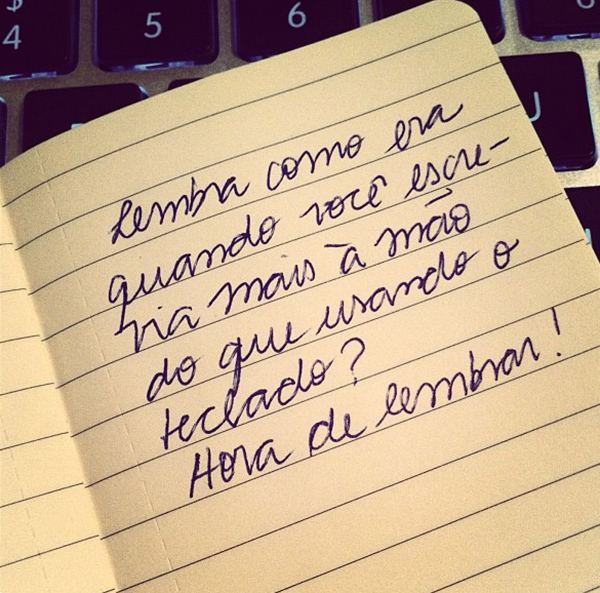 $
4
5
6
J
Lembra como era
quando você escre-
via mais à mão
do que usando o
teclado?
Hora de lembrar!